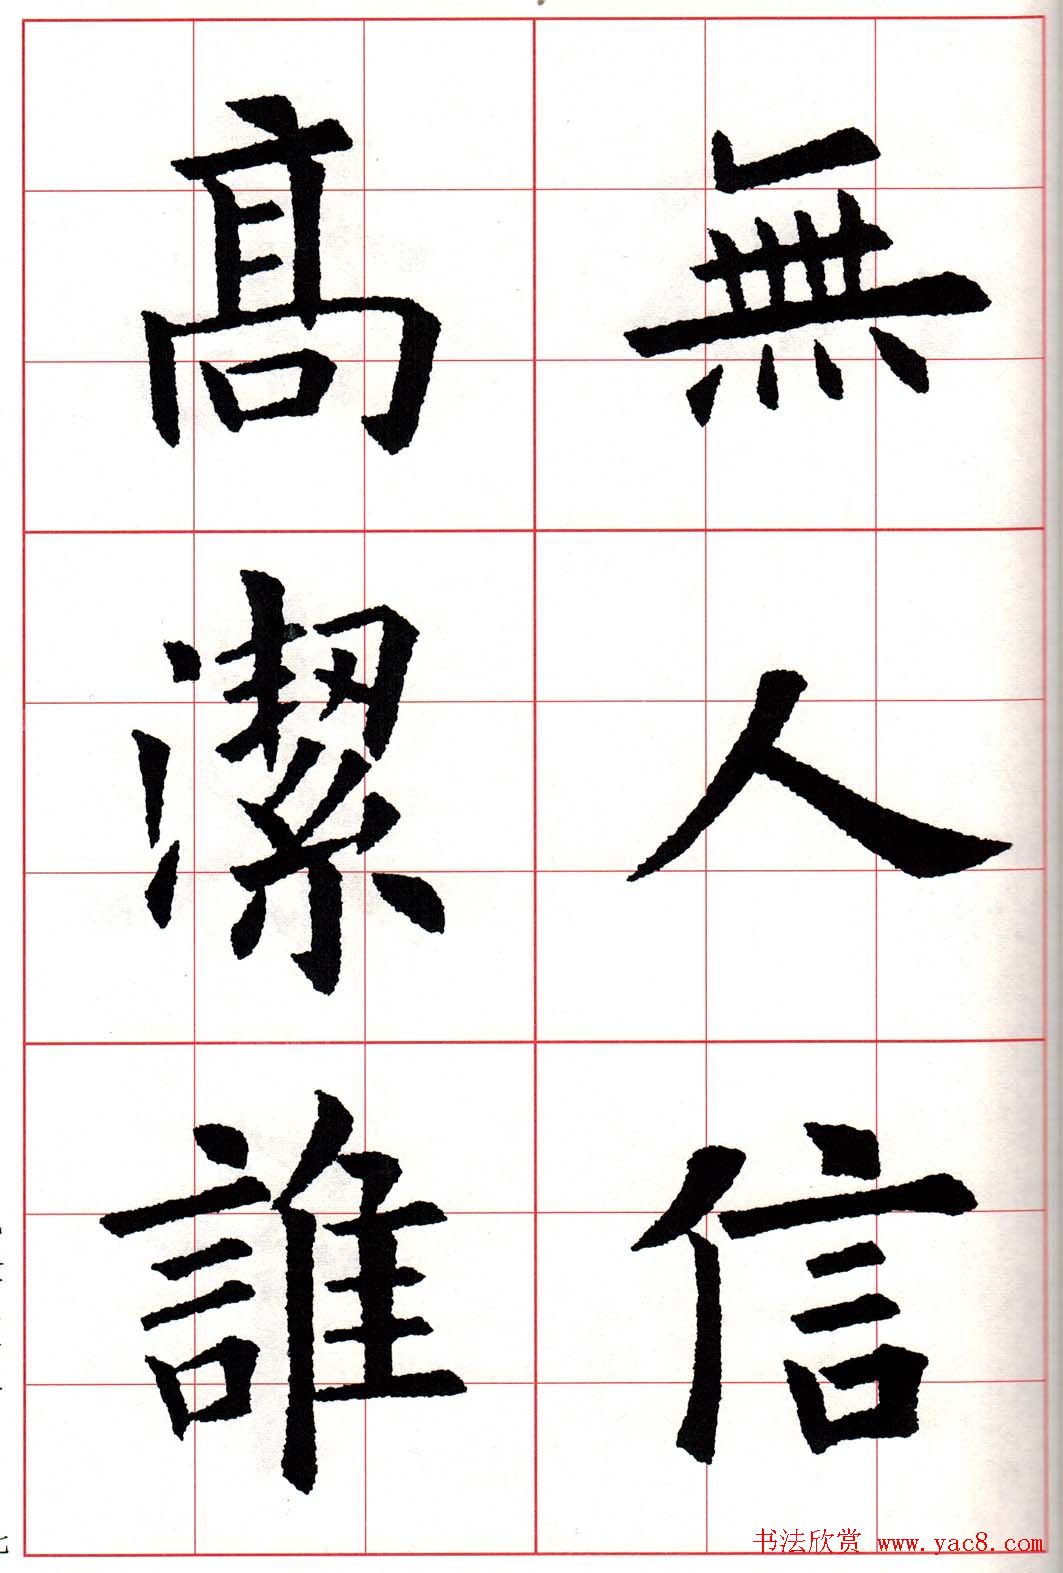 無人信
髙潔誰
书法欣赏 www.yac8.com